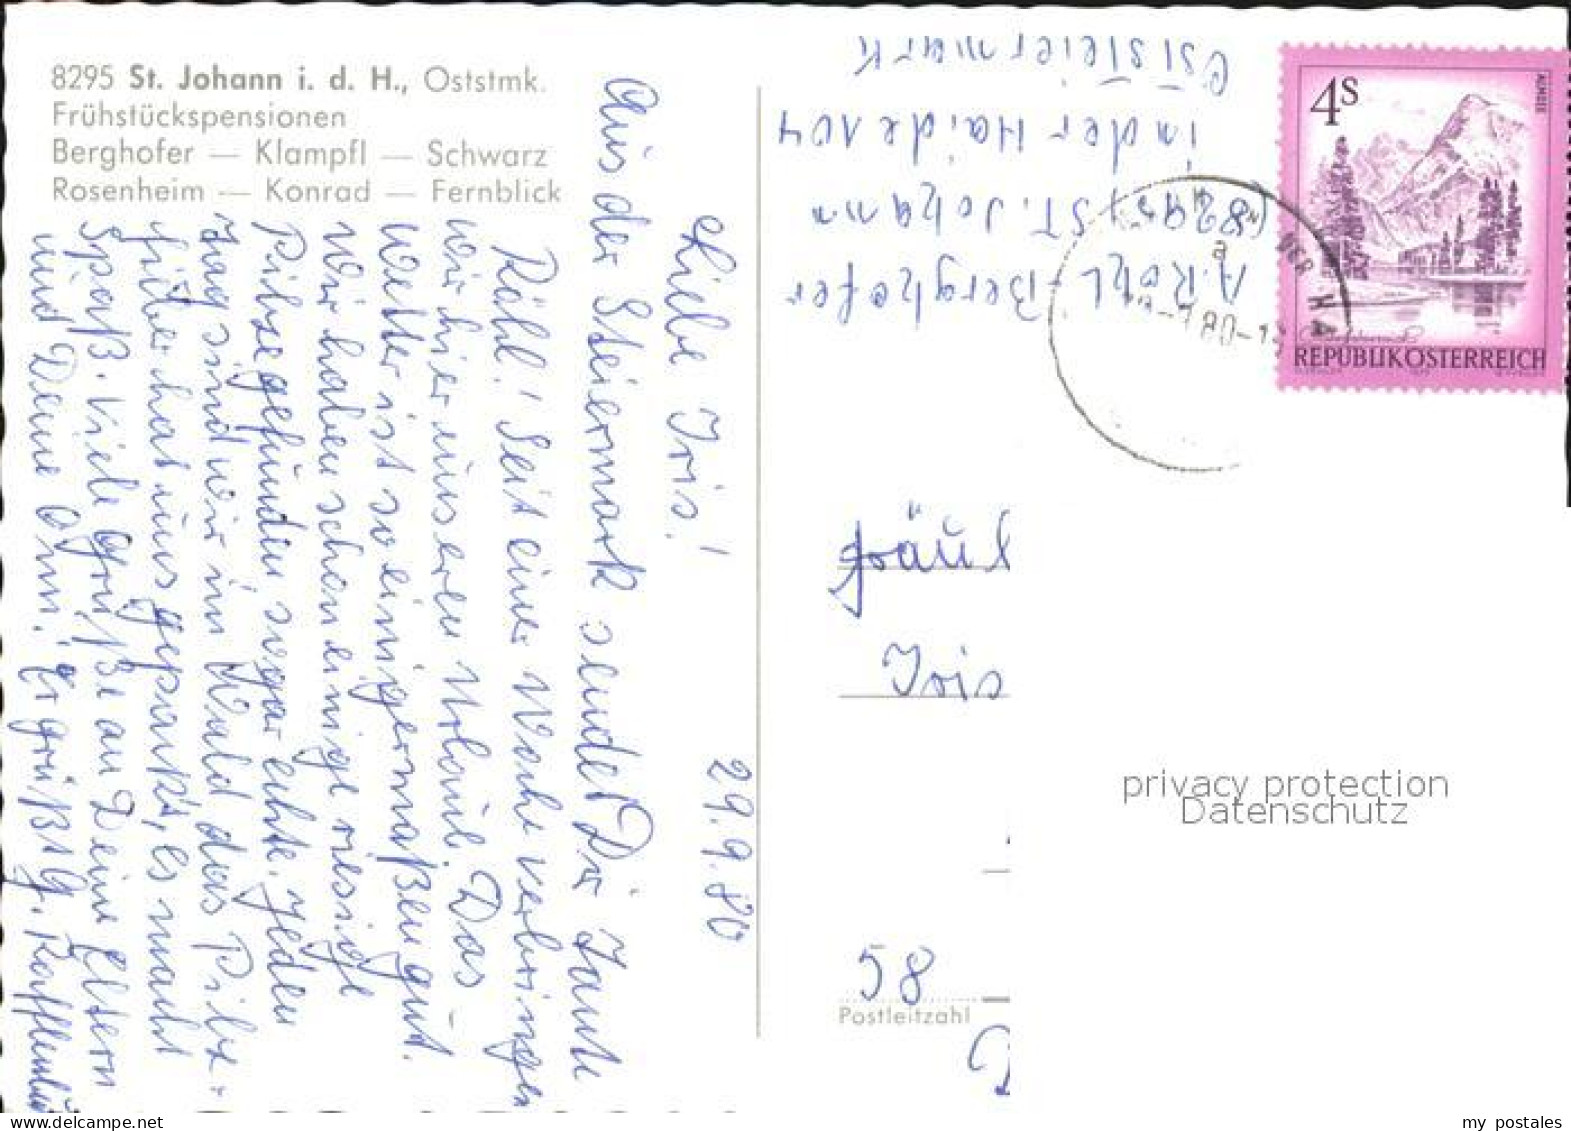 8295 St. Johann i. d. H., Oststmk.
Frühstückspensionen
Berghofer — Klampfl — Schwarz
Rosenheim — Konrad — Fernblick
29.9.80
Liebe Iris!
Aus der Steiermark sendet Dir Tante
Röhl! Seit einer Woche verbringen
wir hier unseren Urlaub. Das
Wetter ist so einigermaßen gut.
Wir haben schon einige riesige
Pilze gefunden sogar echte. Jeden
Tag sind wir im Wald das Pilz-
fieber hat uns gepackt, es macht
Spaß. Viele Grüße an Deine Eltern
und Deine Omi. Es grüßt G.
A. Röhl - Berghofer
(8295) St. Johann
in der Haide 104
Oststeiermark
4S
ALMSEE
REPUBLIK ÖSTERREICH
DER HA
80-1
Fräul
Iris
58
Postleitzahl
D
privacy protection
Datenschutz
www.delcampe.net
my_postales